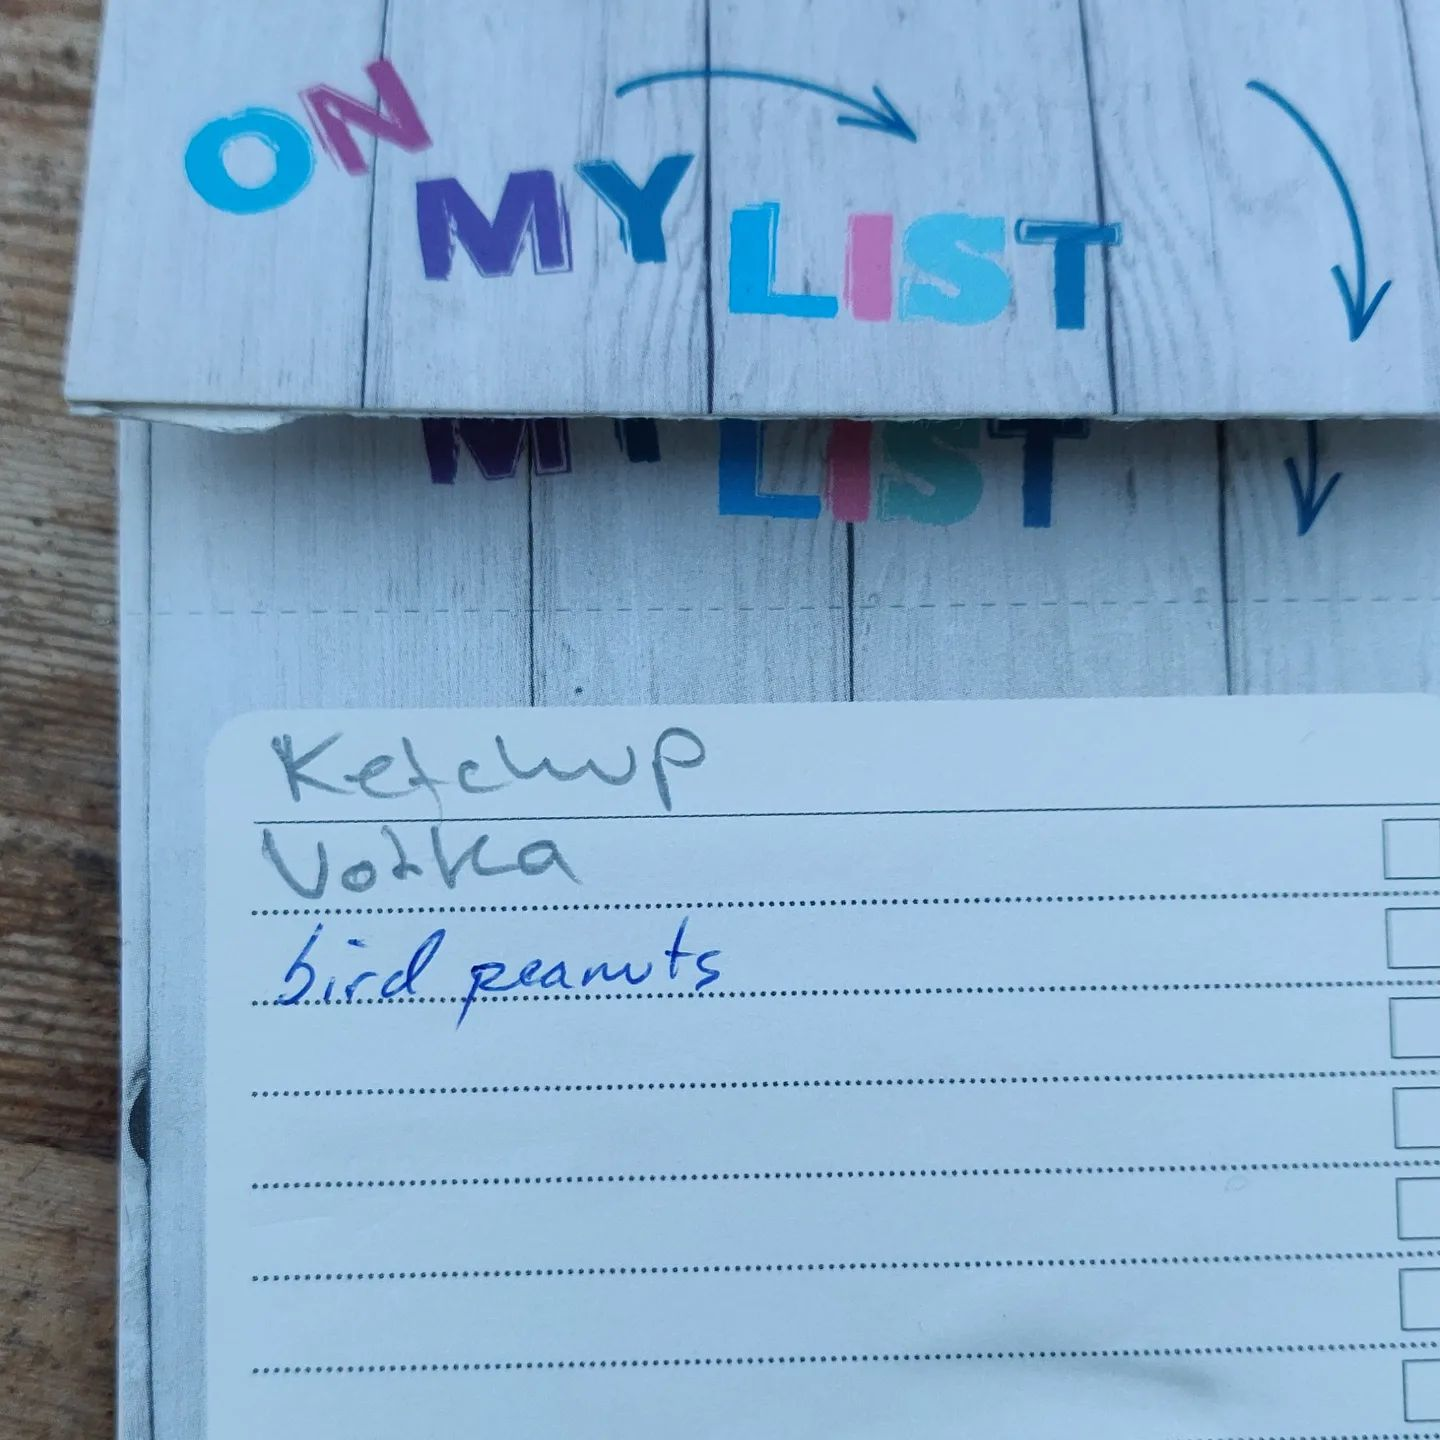 ON
MY LIST
MY LIST
Ketchup
Vodka
bird peanuts